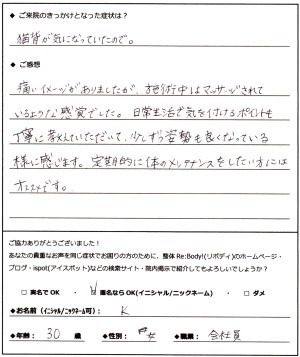 ◆ ご来院のきっかけとなった症状は？
猫背が気になっていたので。
◆ ご感想
痛いイメージがありましたが、施術中はマッサージされて
いるような感覚でした。日常生活で気を付けるポイントも
丁寧に教えていただいて、少しずつ姿勢も良くなっている
様に感じます。定期的に体のメンテナンスをしたい方には
オススメです。
ご協力ありがとうございました！
あなたの貴重なお声を同じ症状でお困りの方のために、整体 Re:Body!(リボディ)のホームページ・
ブログ・ispot(アイスポット)などの検索サイト・院内掲示で紹介してもよろしいでしょうか？
□ 実名でOK ・ ☑ 匿名ならOK(イニシャル/ニックネーム) ・ □ ダメ
◆お名前（イニシャル/ニックネーム可）： K
◆年齢： 30 歳 ◆性別： 女 ◆職業： 会社員